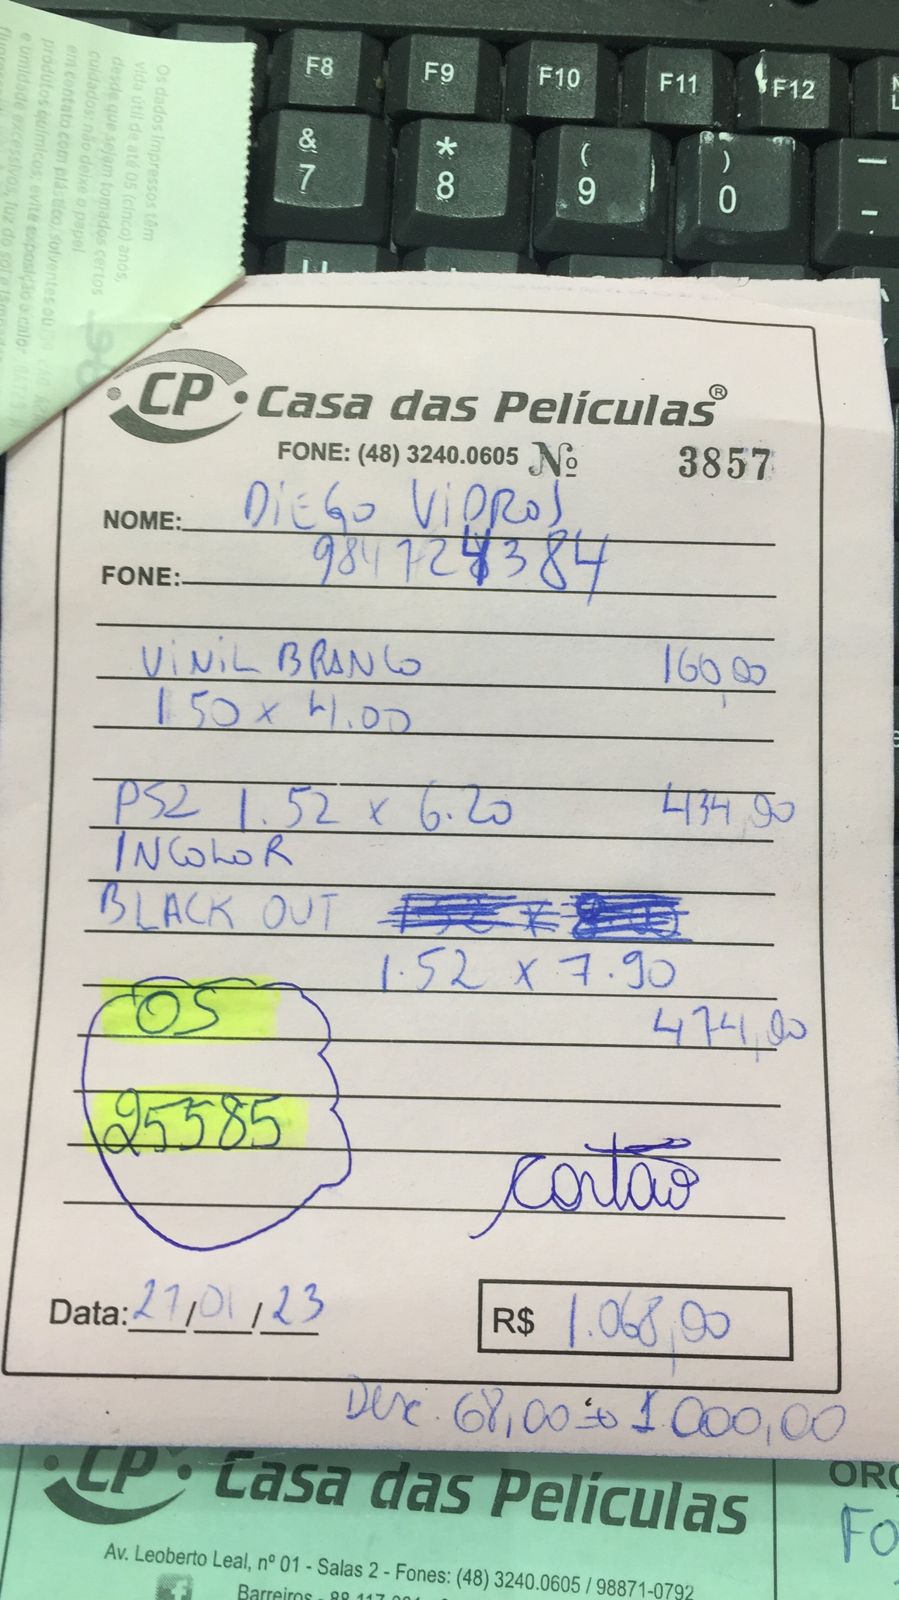 F8 F9 F10 F11 F12
& * ( ) —
7 8 9 0 -
Os dados impressos têm
vida útil de até 05 (cinco) anos,
desde que sejam tomados certos
cuidados: não deixe o papel
em contato com plástico, solventes ou
produtos químicos, evite exposição a calor
e umidade excessivos, luz do sol e
CP Casa das Películas®
FONE: (48) 3240.0605 Nº 3857
NOME: DIEGO VIDROS
FONE: 984724384
VINIL BRANCO 160,00
1.50 x 4.00
PS2 1.52 x 6.20 434,00
INCOLOR
BLACK OUT
1.52 x 7.90
OS 474,00
25585
cartão
Data: 27/01/23 R$ 1.068,00
Desc. 68,00 => 1000,00
CP Casa das Películas
ORÇ
FO
Av. Leoberto Leal, nº 01 - Salas 2 - Fones: (48) 3240.0605 / 98871-0792
Barreiros - 88.117-001